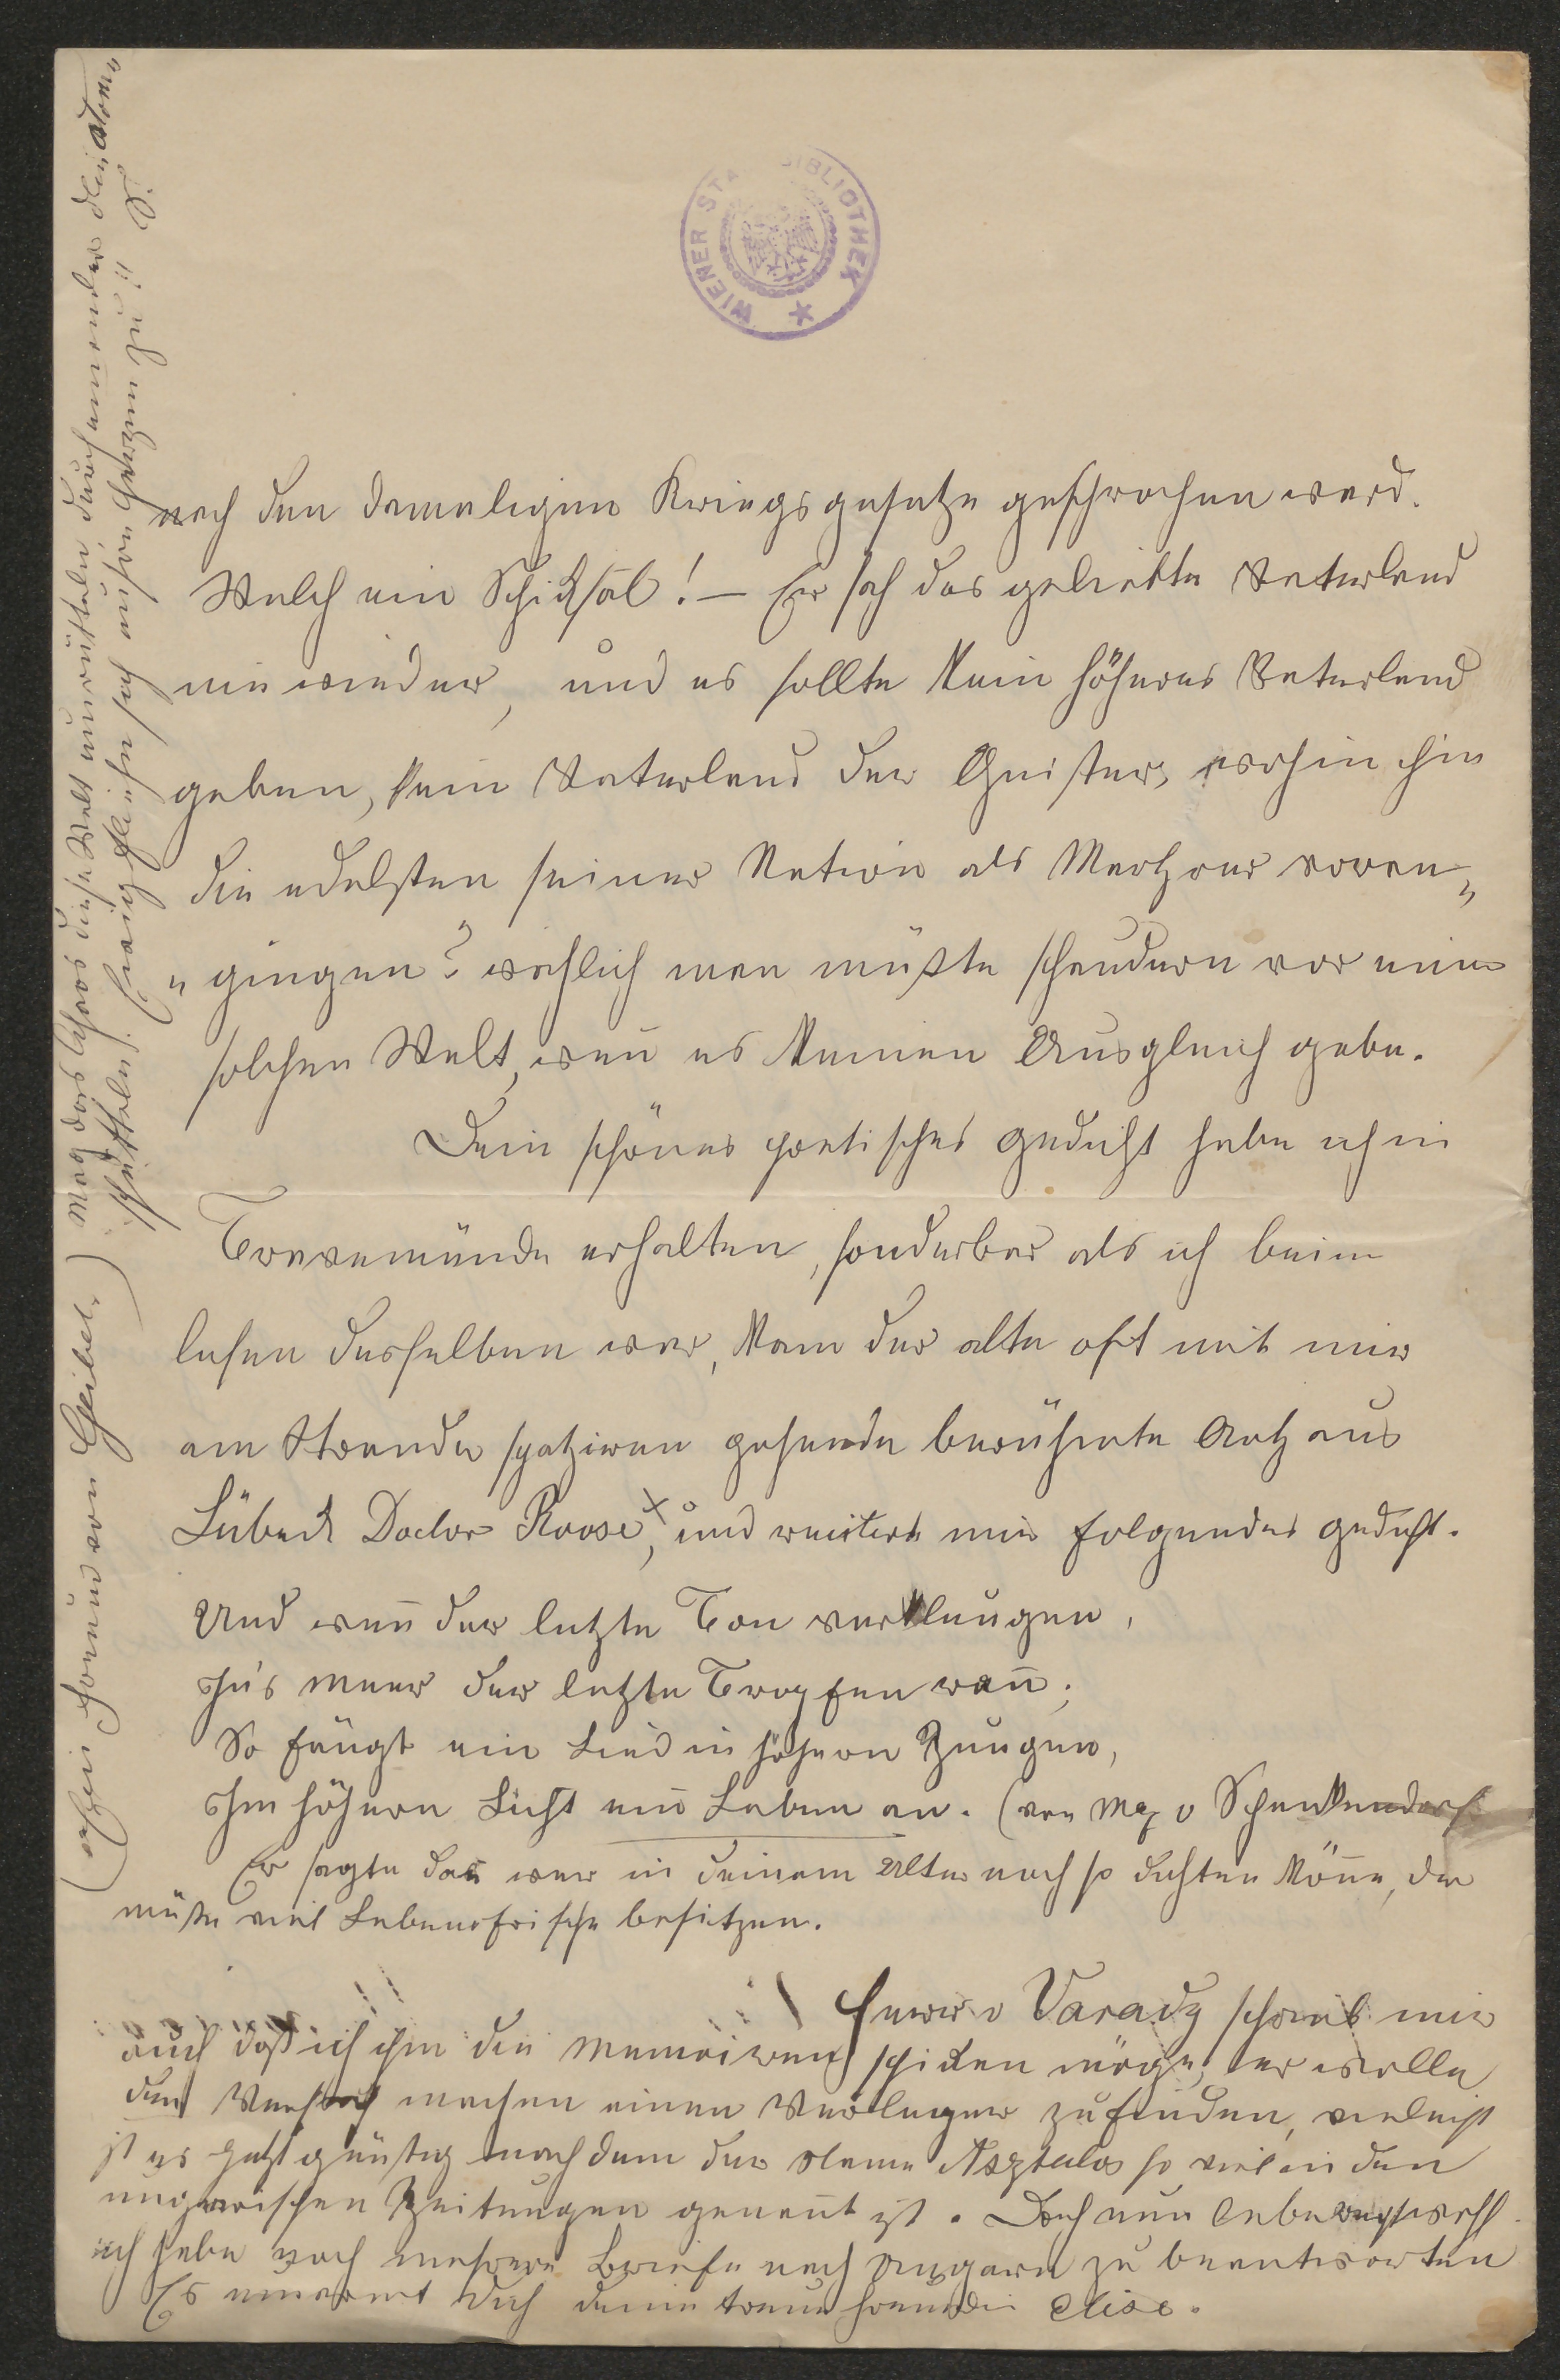 WIENER STADTBIBLIOTHEK
nach den damaligen Kriegsgesetze gesprochen ward.
Welch ein Schicksal! — Er sah das geliebte Vaterland
nie wieder, und es sollte kein höheres Vaterland
geben, kein Vaterland der Geister, wohin ihm
die edelsten seiner Nation als Märtyrer voran„
„gingen? wahlich man müßte schaudern vor einer
solchen Welt, wen̄ es keinen Ausgleich gebe.
Dein schönes poetisches Gedicht habe ich in
Travemünde erhalten, sonderbar als ich beim
lesen desselben war, kam der alte oft mit mir
am Strande spatziren gehende berühmte Artz aus
Lübeck Doctor Roose,× und recitirte mir folgendes Gedicht.
Und wen̄ der letzte Ton verklungen,
In's Meer der letzte Tropfen ran̄;
So fängt ein Lied in höhern Zungen,
Im höhern Licht ein Leben an. (von Max v Schenkendorf
Er sagte das wer in deinem Alter noch so dichten kön̄e, der
müße viel Lebensfrische besitzen.
Herr v Varady schrieb mir
auch daß ich ihm die Memoiren schicken möge, er wolle
den Versuch machen einen Verleger zu finden, vieleicht
ist es jetzt günstig nach dem der Name Asztalos so viel in den
ungarischen Zeitungen genen̄t ist. Doch nun lebe wohl
ich habe noch mehrere Briefe nach Ungarn zu beantworten
Es umarmt Dich deine treue Freundin Elise.
(× ein Freund von Geibel.) Mag das Chaos diese Welt
schütteln.